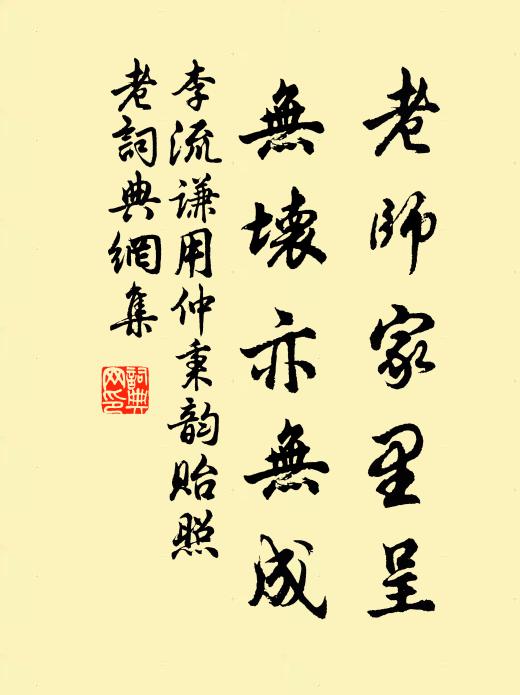 老師家里呈
無壞亦無成
李流謙用仲秉韵貽照
老詞典網集
詞典網印